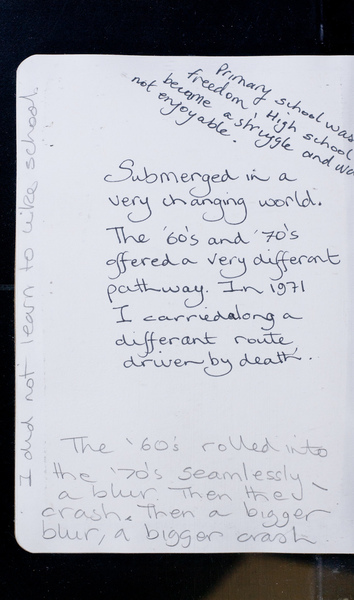 Primary school was
freedom! High school
became a struggle and wa
not enjoyable.
Submerged in a
very changing world.
The '60's and '70's
offered a very different
pathway. In 1971
I carried along a
different route
driven by death.
I did not learn to like school.
The '60's rolled into
the '70's seamlessly -
a blur. Then the
crash. Then a bigger
blur, a bigger crash